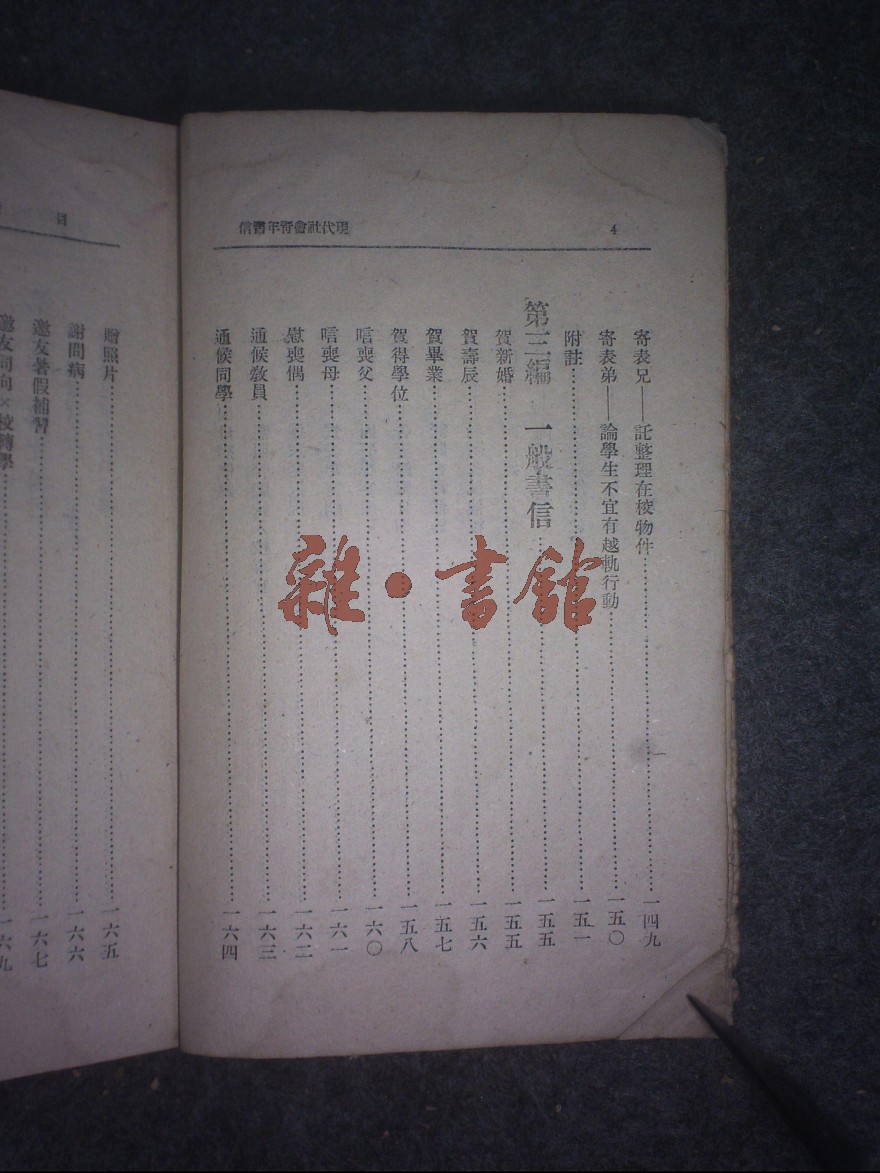 4
現代社會青年書信
寄表兄——託整理在校物件……一四九
寄表弟——論學生不宜有越軌行動……一五〇
附註……一五一
第三編 一般書信……一五五
賀新婚……一五五
賀壽辰……一五六
賀畢業……一五七
賀得學位……一五八
唁喪父……一六〇
唁喪母……一六一
慰喪偶……一六二
通候教員……一六三
通候同學……一六四
雜·書館
目
贈照片……一六五
謝問病……一六六
邀友暑假補習……一六七
邀友同向×校轉學……一六九